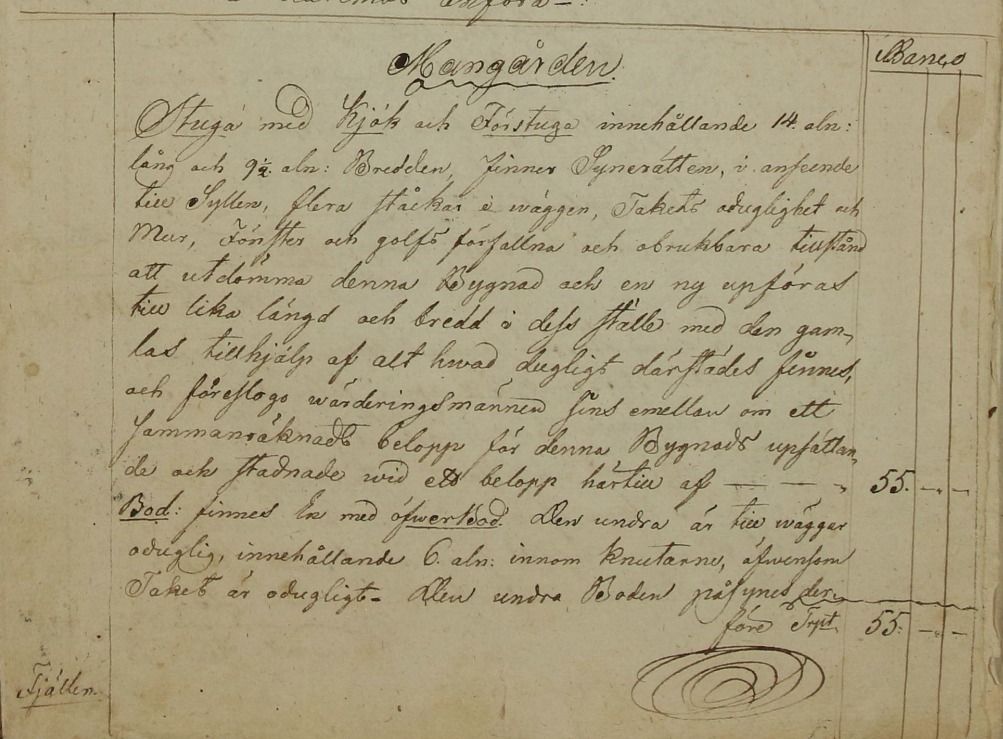 Mangården.
i Banco
Stuga med Kjök och Förstuga innehållande 14. aln:
lång och 9½. aln: Bredden, finner Synerätten, i anseende
till Syllen, flera ståckar i wäggen, Takets oduglighet och
Mur, Fönster och golfs förfallna och obrukbara tillstånd
att utdömma denna Bygnad och en ny upföras
till lika längd och bredd i dess ställe med den gam-
las tillhjälp af alt hwad dugligt därstädes finnes,
och föreslogo wärderingsmännen sins emellan om ett
sammanräknadt belopp för denna Bygnads upsättan-
de och stadnade wid ett belopp härtill af — — — „ 55. — „ —
Bod: finnes En med öfwerbod. Den undra är till wäggar
oduglig, innehållande 6. aln: innom knutarne, äfwensom
Taket är odugligt. Den undra Boden påsynes der-
före Trpt. 55. — „ —
Fjällen.